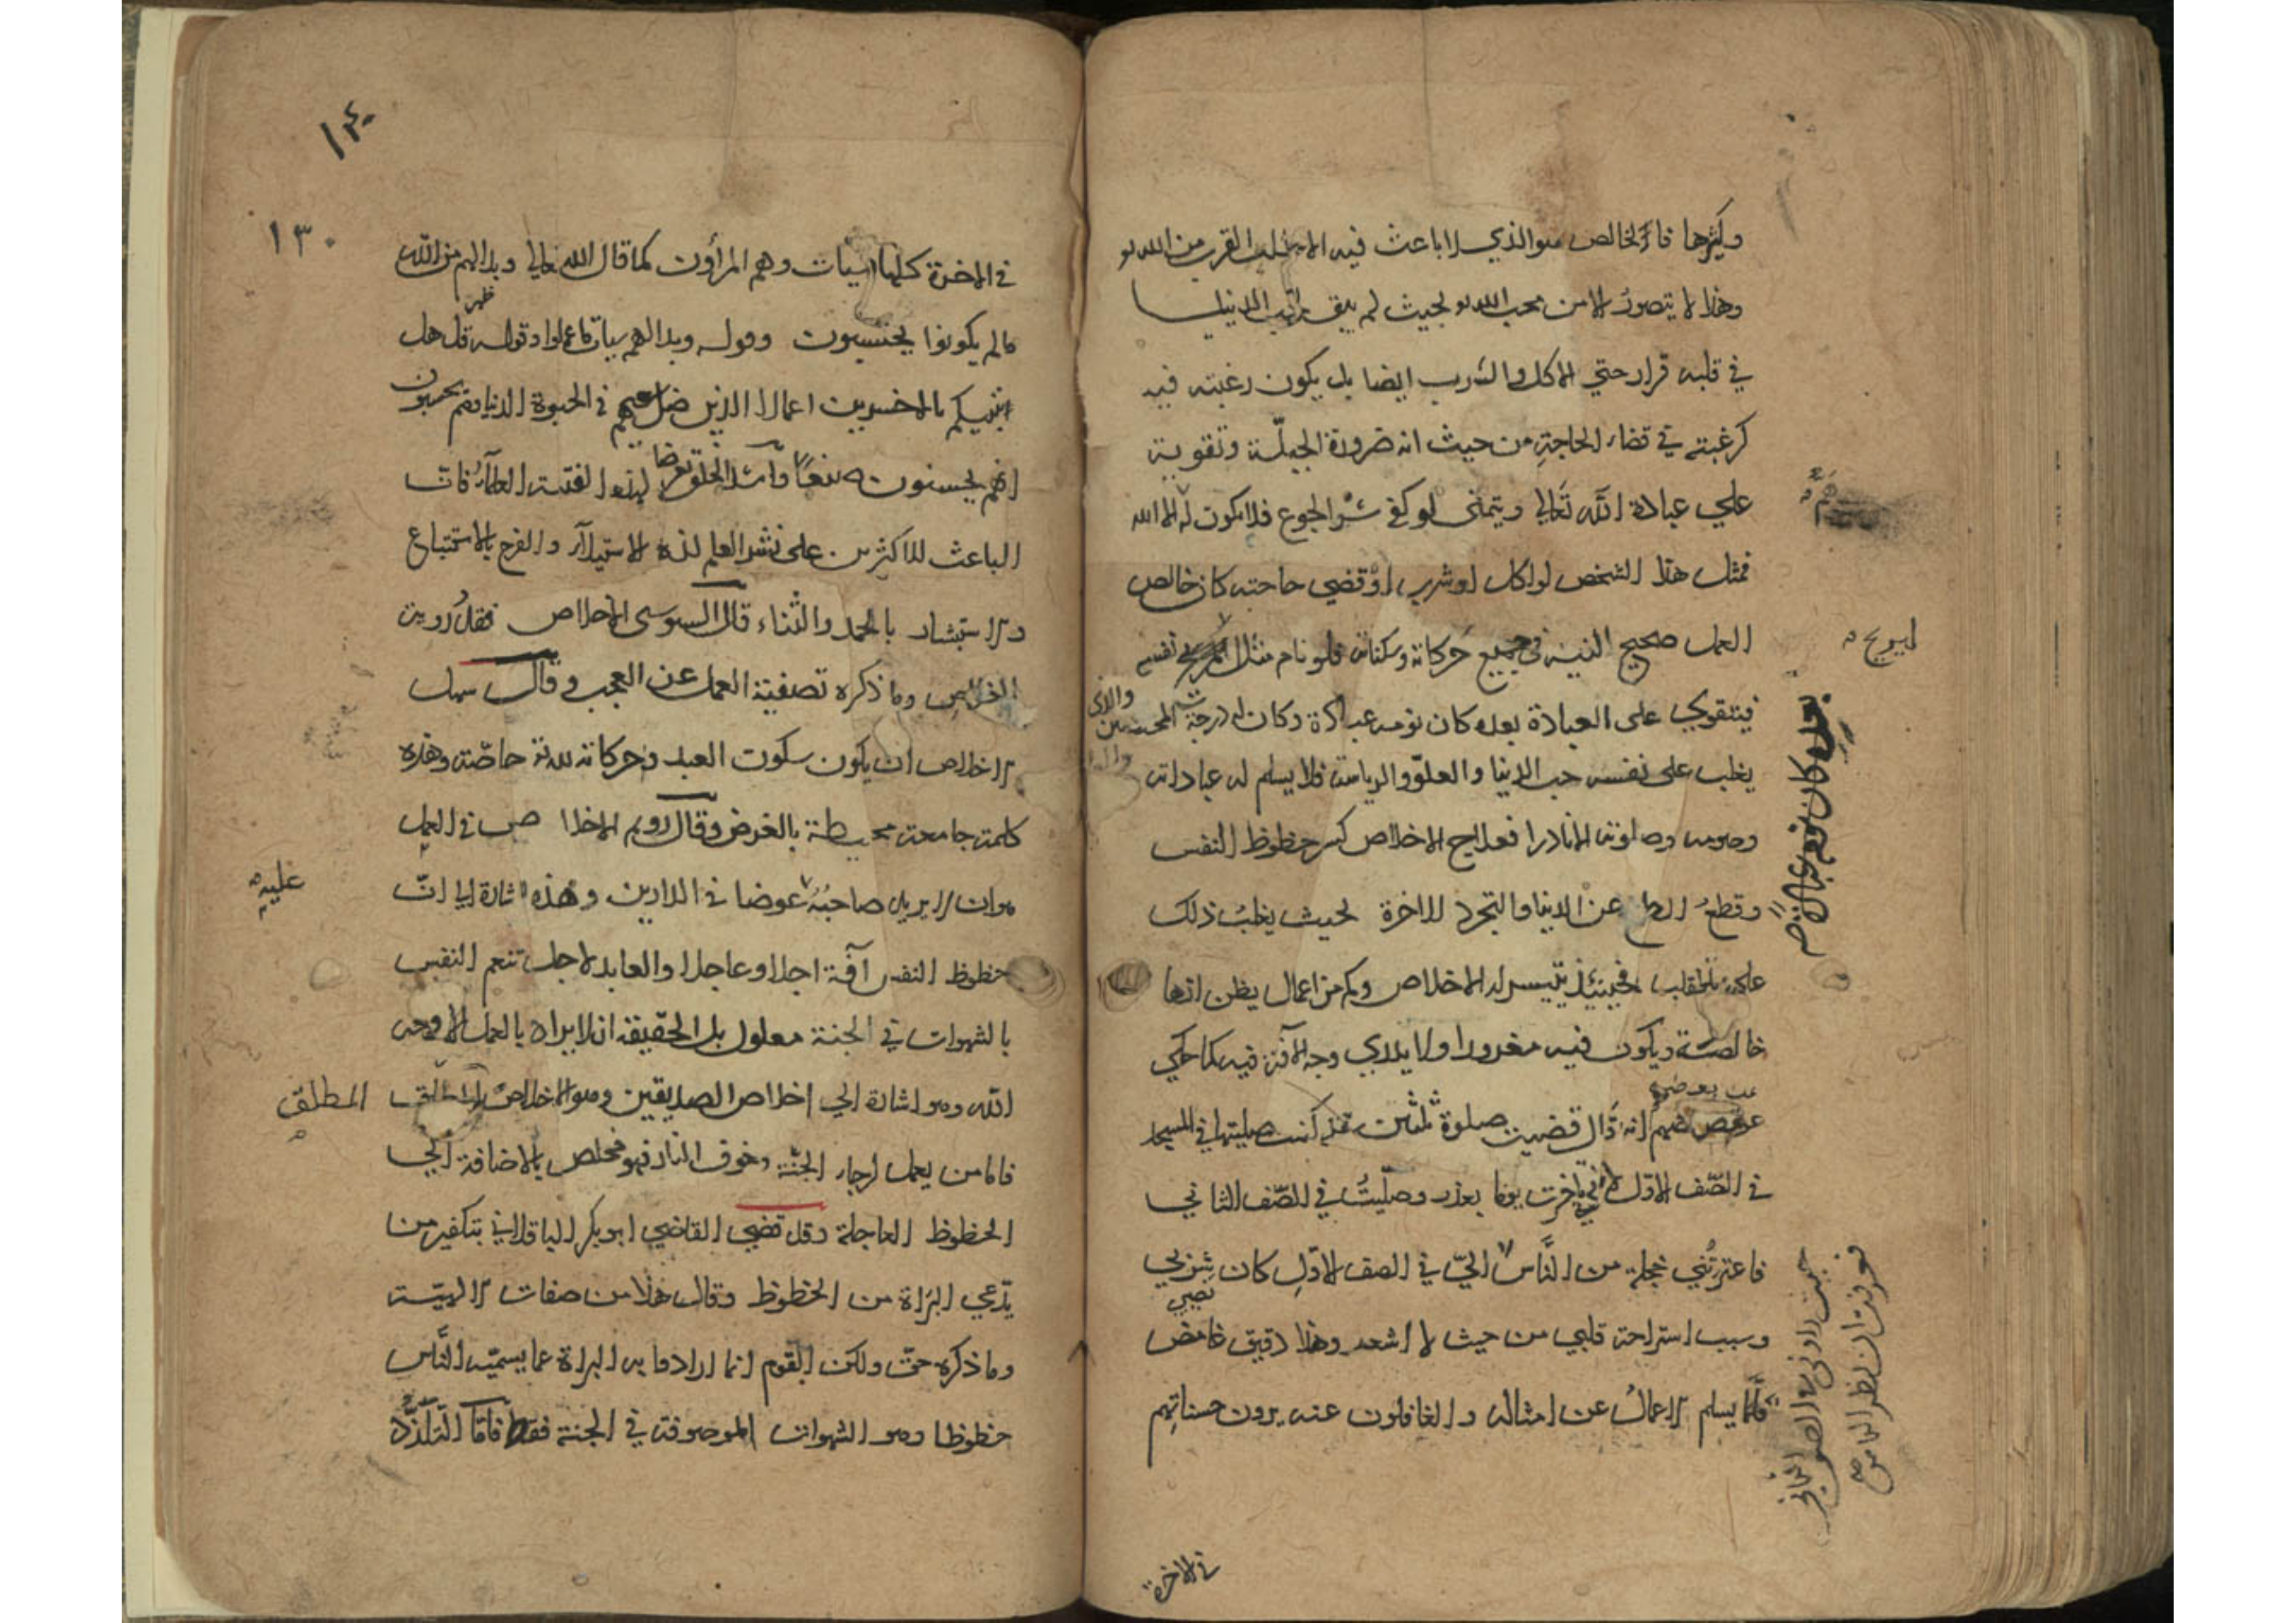 وكثيرها فاذًا الخالص هو الذي لا باعث فيه الا طلب القرب من الله
وهذا لا يتصور الا من محب الله بحيث لم يبق لحب الدنيا
في قلبه قرار حتي الاكل والشرب ايضا بل يكون رغبته فيه
كرغبته في قضاء الحاجة من حيث انه ضرورة الجبلّة وتقوية
علي عبادة الله تعالي ويتمنى لو كفي شر الجوع فلا يكون له الا الله
فمثل هذا الشخص لو اكل او شرب او قضي حاجته كان خالص
العمل صحيح النية في جميع حركاته وسكناته فلو نام مثلا ليريح نفسه
ليريح
فيتقوي على العبادة بعده كان نومه عبادة وكان له درجة المخلصين
والذي
يغلب على نفسه حب الدنيا والعلوّ والرياسة فلا يسلم له عباداته
وصومه وصلوته الا نادرا فعلاج الاخلاص كسر حظوظ النفس
وقطع الطمع عن الدنيا والتجرد للاخرة بحيث يغلب ذلك
على القلب فحينئذ يتيسر له الاخلاص وكم من اعمال يظن انها
خالصة ويكون فيه مغرورا ولا يدري وجه الآفة فيه كما حكي
عن بعضهم
عن بعضهم انه قال قضيت صلوة ثلثين سنة كنت صليتها في المسجد
في الصّف الاوّل لاني تاخرت يوما بعذر وصلّيتُ في الصّف الثاني
فاعترتني خجلة من النَّاس
الي في الصف الاوّل كان
وسبب استراحة قلبي من حيث لا اشعر وهذا دقيق غامض
قلّما يسلم الاعمالُ عن امثاله والغافلون عنه يرون حسناتهم
في الاخرة
١٣٠
في الاخرة كلها سيات وهم المرأون كما قال الله تعالى وبدا لهم من الله
ظهر
مالم يكونوا يحتسبون وقوله وبدا لهم سيات ما عملوا وقوله قل هل
انبئكم بالاخسرين اعمالا الذين ضل سعيهم في الحيوة الدنيا وهم يحسبون
انهم يحسنون صنعًا واشد الخلق تعرضا لهذه الفتنة العلمآء فان
الباعث للاكثرين على نشر العلم لذة الاستيلآء والفرح بالاستتباع
والاستبشار بالحمد والثناء قال السوسى الاخلاص فقد روية
الاخلاص وما ذكره تصفية العمل عن العجب وقال سهل
الاخلاص ان يكون سكون العبد وحركاته لله خاصّة وهذه
كلمة جامعة محيطة بالغرض وقال رويم الاخلاص في العمل
هو ان لا يريد صاحبُه عليه عوضا في الدارين وهذه اشارة الي انّ
حظوظ النفس آفة اجلا وعاجلا والعابد لاجل تنعم النفس
بالشهوات في الجنة معلول بل الحقيقة ان لا يراد بالعمل الا وجه
الله وهو اشارة الي اخلاص الصديقين وهو الاخلاص المطلق
المطلق
فاما من يعمل لرجاء الجنّة وخوف النار فهو مخلص بالاضافة الي
الحظوظ العاجلة وقد قضي القاضي ابو بكر الباقلاني بتكفير من
يدّعي البراة من الحظوظ وقال هذا من صفات الالهيّة
وما ذكره حقّ ولكن القوم انما ارادوا به البراة عما يسميّه النَّاس
حظوظا وهو الشهوات الموصوفة في الجنة فقط فامّا التلذّذ